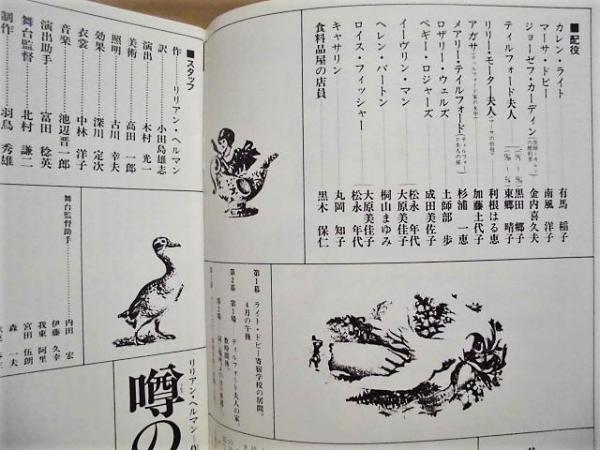 ■配役
カレン・ライト 有馬 稲子
マーサ・ドビー 南風 洋子
ジョーゼフ・カーディン 金内喜久夫
ティルフォード夫人 黒田 郷子
東郷 晴子
リリー・モーター夫人 利根はる恵
アガサ 加藤土代子
メアリー・テイルフォード 杉浦 一恵
ロザリー・ウェルズ 土師部 歩
ペギー・ロジャーズ 成田美佐子
イーヴリン・マン 松永 年代
大原美佳子
ヘレン・バートン 桐山まゆみ
ロイス・フィッシャー 大原美佳子
松永 年代
キャサリン 丸岡 知子
食料品屋の店員 黒木 保仁
第1幕 ライト・ドビー寄宿学校の居間。
4月の午後
第2幕
第1場 ティルフォード夫人の家。
数時間後。
第2場
■スタッフ
作 リリアン・ヘルマン
訳 小田島雄志
演出 木村 光一
美術 高田 一郎
照明 古川 幸夫
効果 深川 定次
衣裳 中林 洋子
音楽 池辺晋一郎
演出助手 富田 稔英
舞台監督 北村 謙二
制作 羽鳥 秀雄
舞台監督助手 内田 宏
伊藤 久幸
我東 阿里
宮田 伍朗
森 一夫
リリアン・ヘルマン―作
噂の